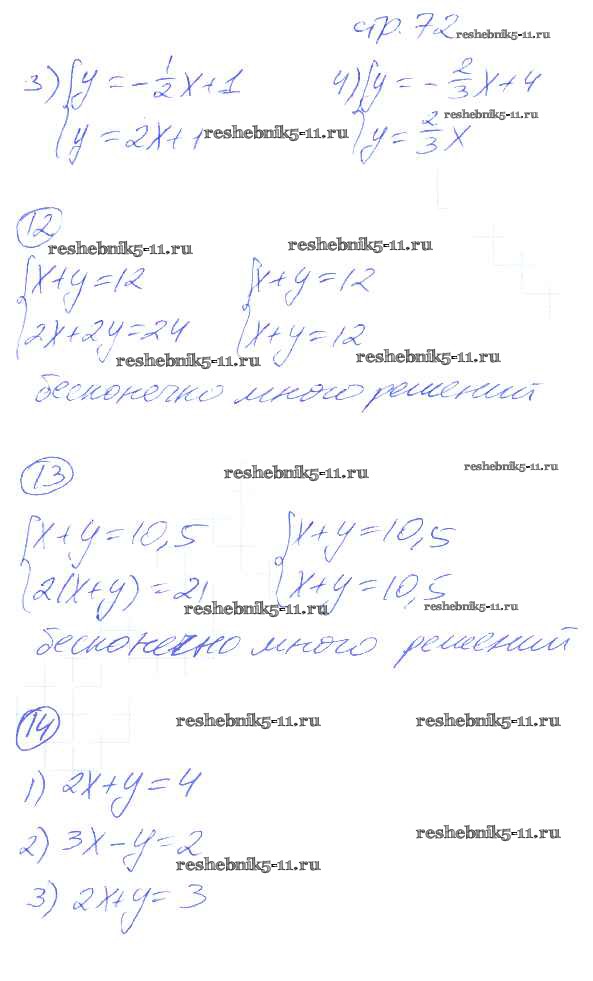 стр. 72 reshebnik5-11.ru
3) { y = -1/2 x + 1 4) { y = -2/3 x + 4
{ y = 2x + 1 reshebnik5-11.ru { y = 2/3 x reshebnik5-11.ru
12
reshebnik5-11.ru reshebnik5-11.ru
{ x + y = 12 { x + y = 12
{ 2x + 2y = 24 { x + y = 12
reshebnik5-11.ru reshebnik5-11.ru
бесконечно много решений
13 reshebnik5-11.ru reshebnik5-11.ru
{ x + y = 10,5 { x + y = 10,5
{ 2(x + y) = 21 { x + y = 10,5
reshebnik5-11.ru reshebnik5-11.ru
бесконечно много решений
14 reshebnik5-11.ru reshebnik5-11.ru
1) 2x + y = 4
2) 3x - y = 2 reshebnik5-11.ru
reshebnik5-11.ru
3) 2x + y = 3